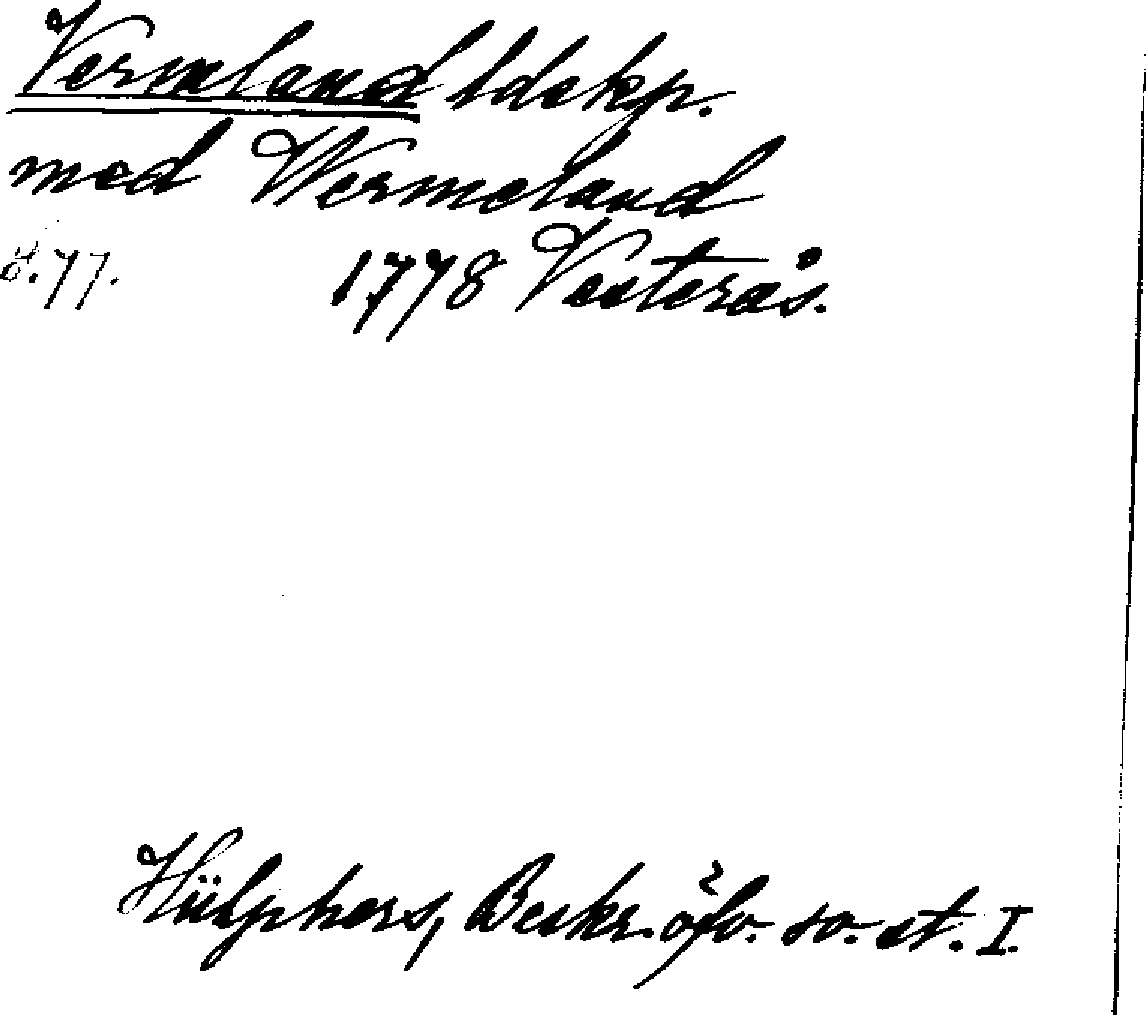 Vermland ldskp.
med Wermeland
s. 77. 1778 Vesterås.
Hülphers, Beskr. öfv. sv. st. I.